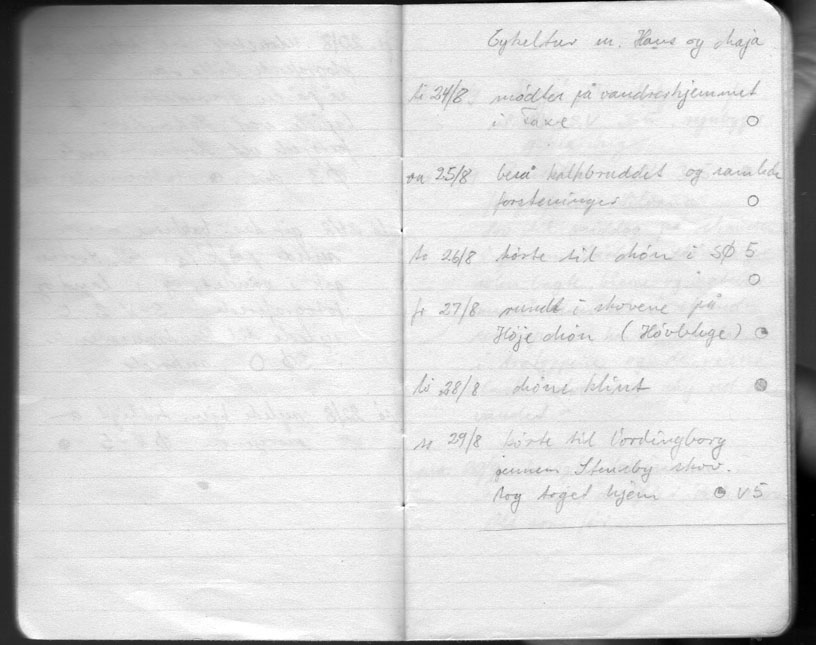 Cykeltur m. Hans og Maja
ti 24/8 mødtes på vandrerhjemmet
i Faxe
on 25/8 beså kalkbruddet og samlede
forsteninger
to 26/8 kørte til Møn i SØ 5
fr 27/8 rundt i skovene på
Høje Møn (Høvblege)
lø 28/8 Møns klint
sø 29/8 kørte til Vordingborg
gennem Stensby skov.
tog toget hjem V5